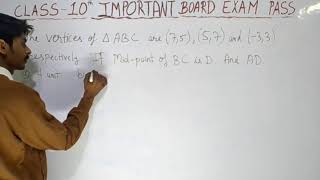 CLASS-10th IMPORTANT BOARD EXAM PASS
The vertices of △ABC are (7,5), (5,7) and (-3,3)
respectively. If Mid-point of BC is D. And AD.
unit